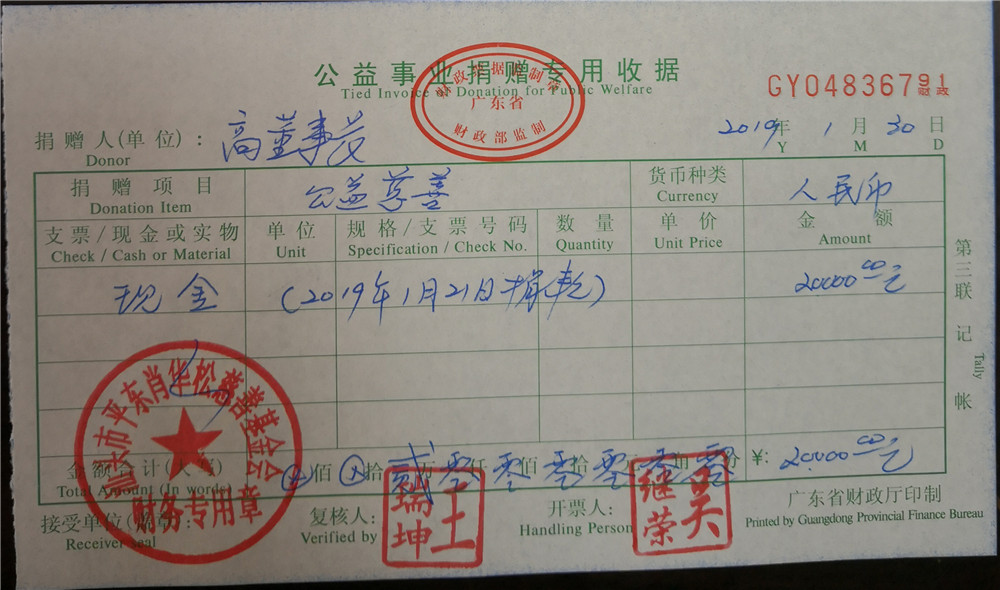 公益事业捐赠专用收据
Tied Invoice of Donation for Public Welfare
广东省
财政部监制
GY04836791
财政
捐赠人(单位): 高董事长
Donor
2019年 1月 30日
Y M D
捐赠项目 公益慈善 货币种类 人民币
Donation Item Currency
支票/现金或实物 单位 规格/支票号码 数量 单价 金额
Check / Cash or Material Unit Specification / Check No. Quantity Unit Price Amount
现金 (2019年1月21日捐款) 20000.00元
第三联 记帐
Tally
市严东肖华松慈善基金会
财务专用章
金额合计(大写) ⊗佰⊗拾贰万零仟零佰零拾零元零角零分 ¥: 20000.00元
Total Amount (In words)
接受单位(盖章): 复核人: 王瑞坤 开票人: 吴继荣 广东省财政厅印制
Receiver seal Verified by Handling Person Printed by Guangdong Provincial Finance Bureau